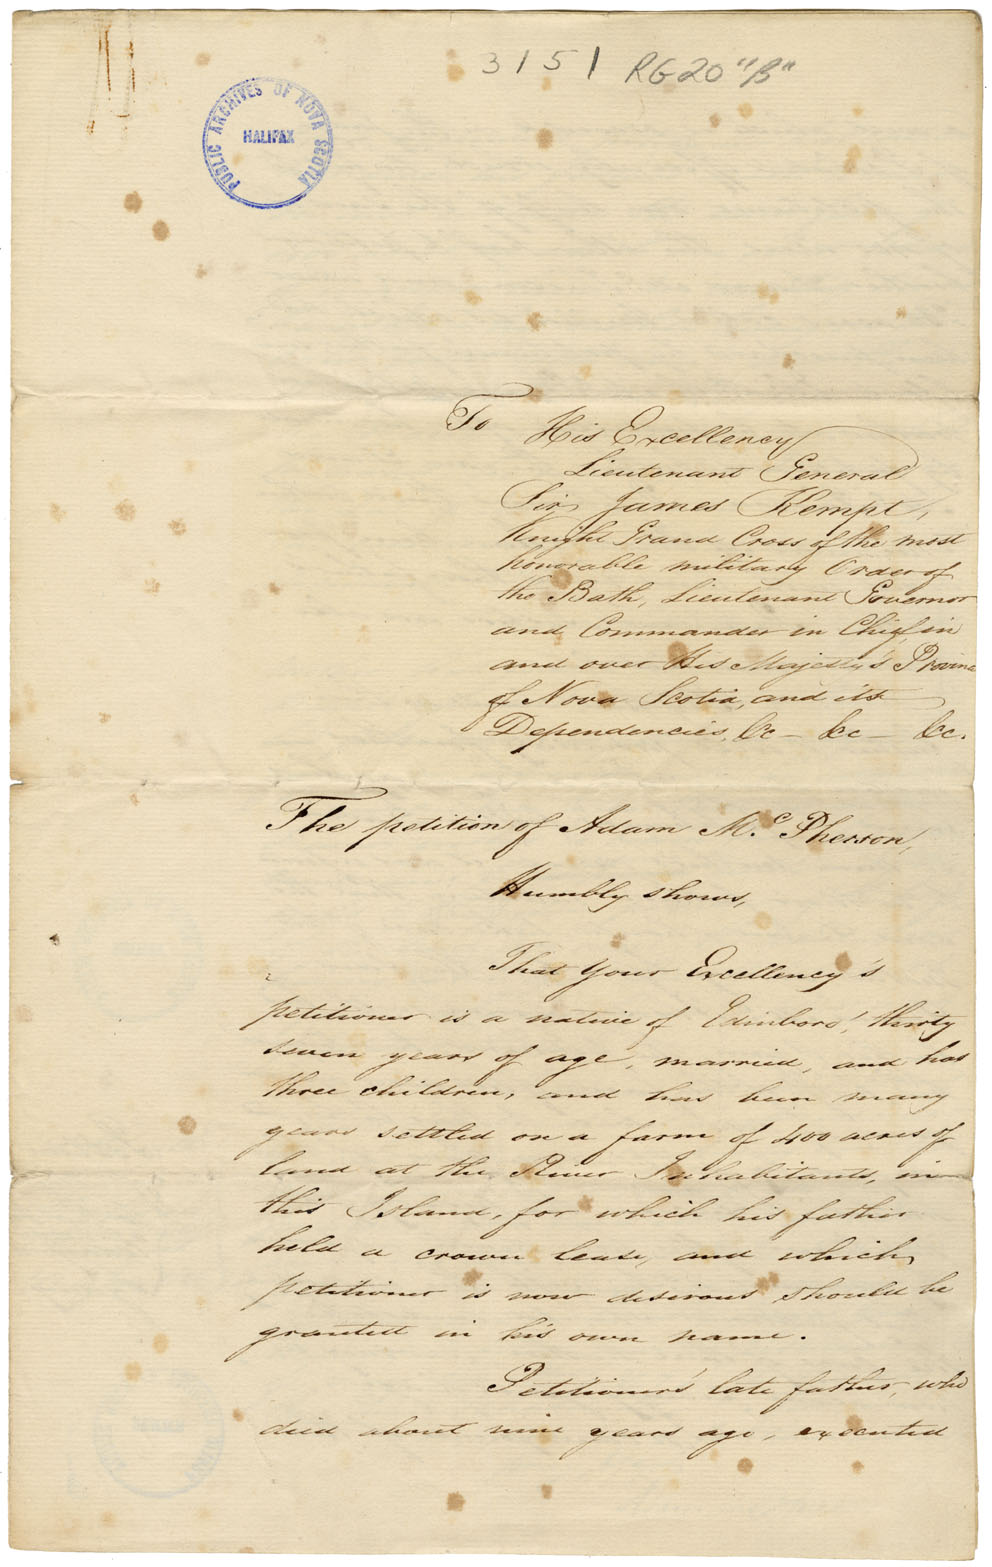 3151 RG 20 "B"
PUBLIC ARCHIVES OF NOVA SCOTIA
HALIFAX
To His Excellency
Lieutenant General
Sir James Kempt,
Knight Grand Cross of the most
honorable military Order of
the Bath, Lieutenant Governor
and Commander in Chief, in
and over His Majesty's Provinc
of Nova Scotia, and its
Dependencies, &c - &c - &c.
The petition of Adam Mc. Pherson,
Humbly shows,
That your Excellency's
petitioner is a native of Edinboro', thirty
seven years of age, married, and has
three children, and has been many
years settled on a farm of 400 acres of
land at the River Inhabitants, in
this Island, for which his father
held a crown lease, and which
petitioner is now desirous should be
granted in his own name.
Petitioner's late father, who
died about nine years ago, executed